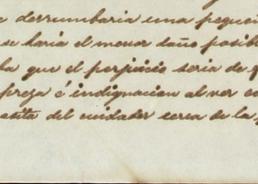 e derrumbaria una pequeñ
se haria el menor daño posib
ba que el perjuicio seria de
preza é indignacion al ver co
del cuidador cerca de la